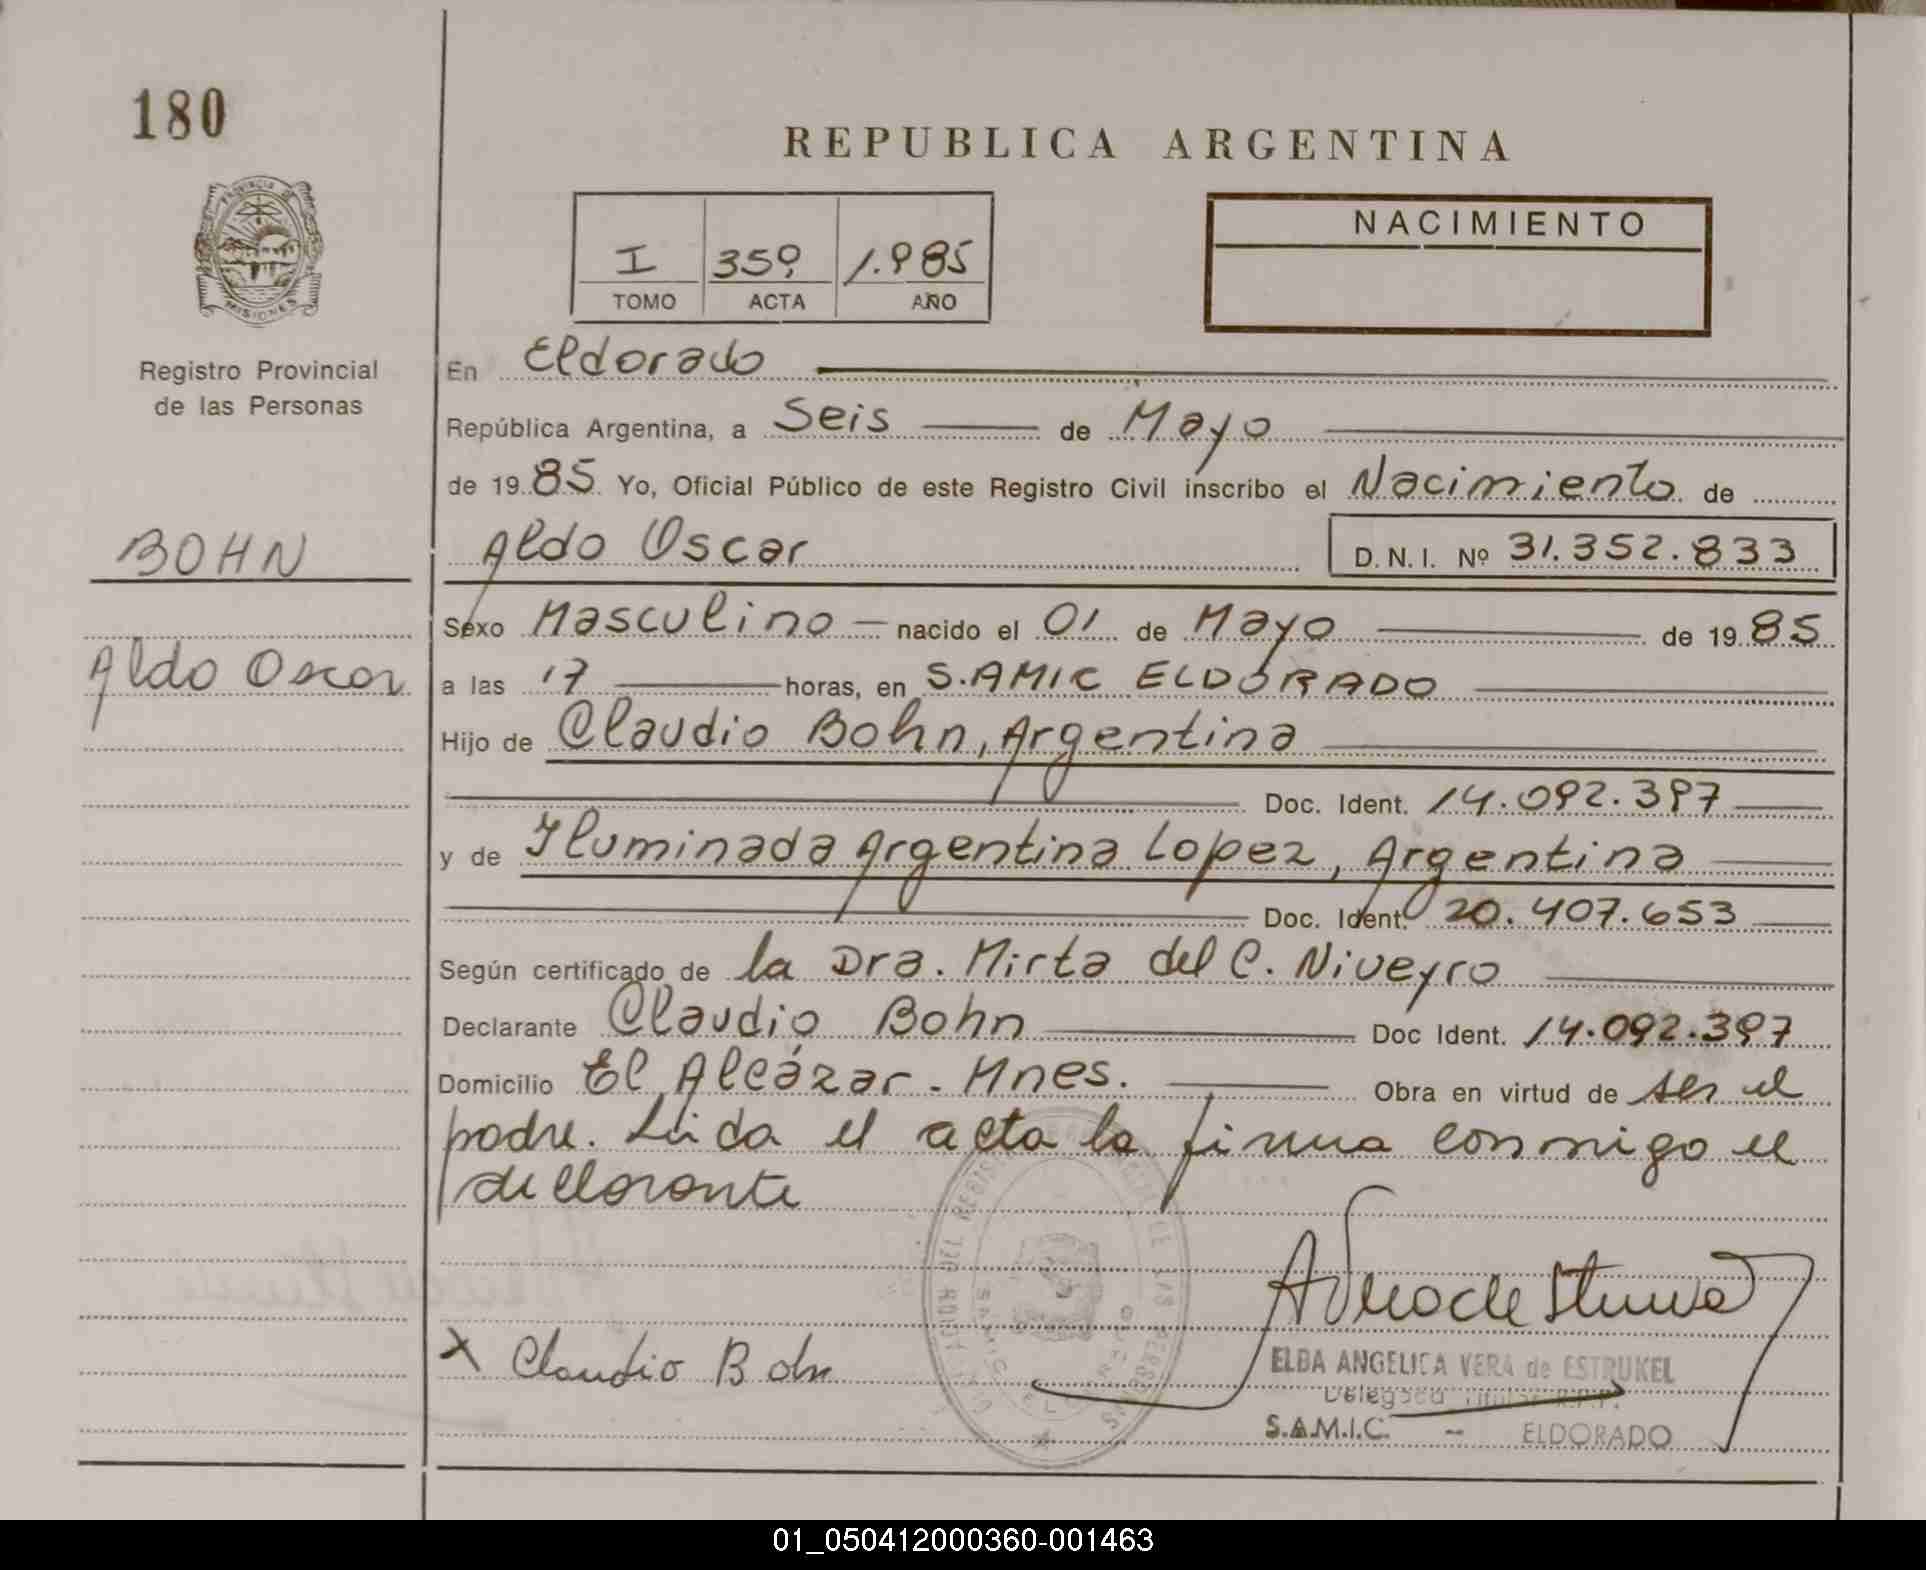 180
REPUBLICA ARGENTINA
PROVINCIA DE
MISIONES
Registro Provincial
de las Personas
I 359 1.985
TOMO ACTA AÑO
NACIMIENTO
En Eldorado
República Argentina, a Seis de Mayo
de 19 85 Yo, Oficial Público de este Registro Civil inscribo el Nacimiento de
BOHN
Aldo Oscar D.N.I. Nº 31.352.833
Sexo Masculino nacido el 01 de Mayo de 19 85
Aldo Oscar
a las 17 horas, en S.AMIC ELDORADO
Hijo de Claudio Bohn, Argentina
Doc. Ident. 14.092.397
y de Iluminada Argentina Lopez, Argentina
Doc. Ident. 20.407.653
Según certificado de la Dra. Mirta del C. Niveyro
Declarante Claudio Bohn Doc Ident. 14.092.397
Domicilio El Alcázar - Mnes. Obra en virtud de ser el
padre. Leida el acta la firma conmigo el
declarante
X Claudio Bohn
ELBA ANGELICA VERA de ESTRUKEL
Delegada Titular R.P.P.
S.A.M.I.C. - ELDORADO
01_050412000360-001463